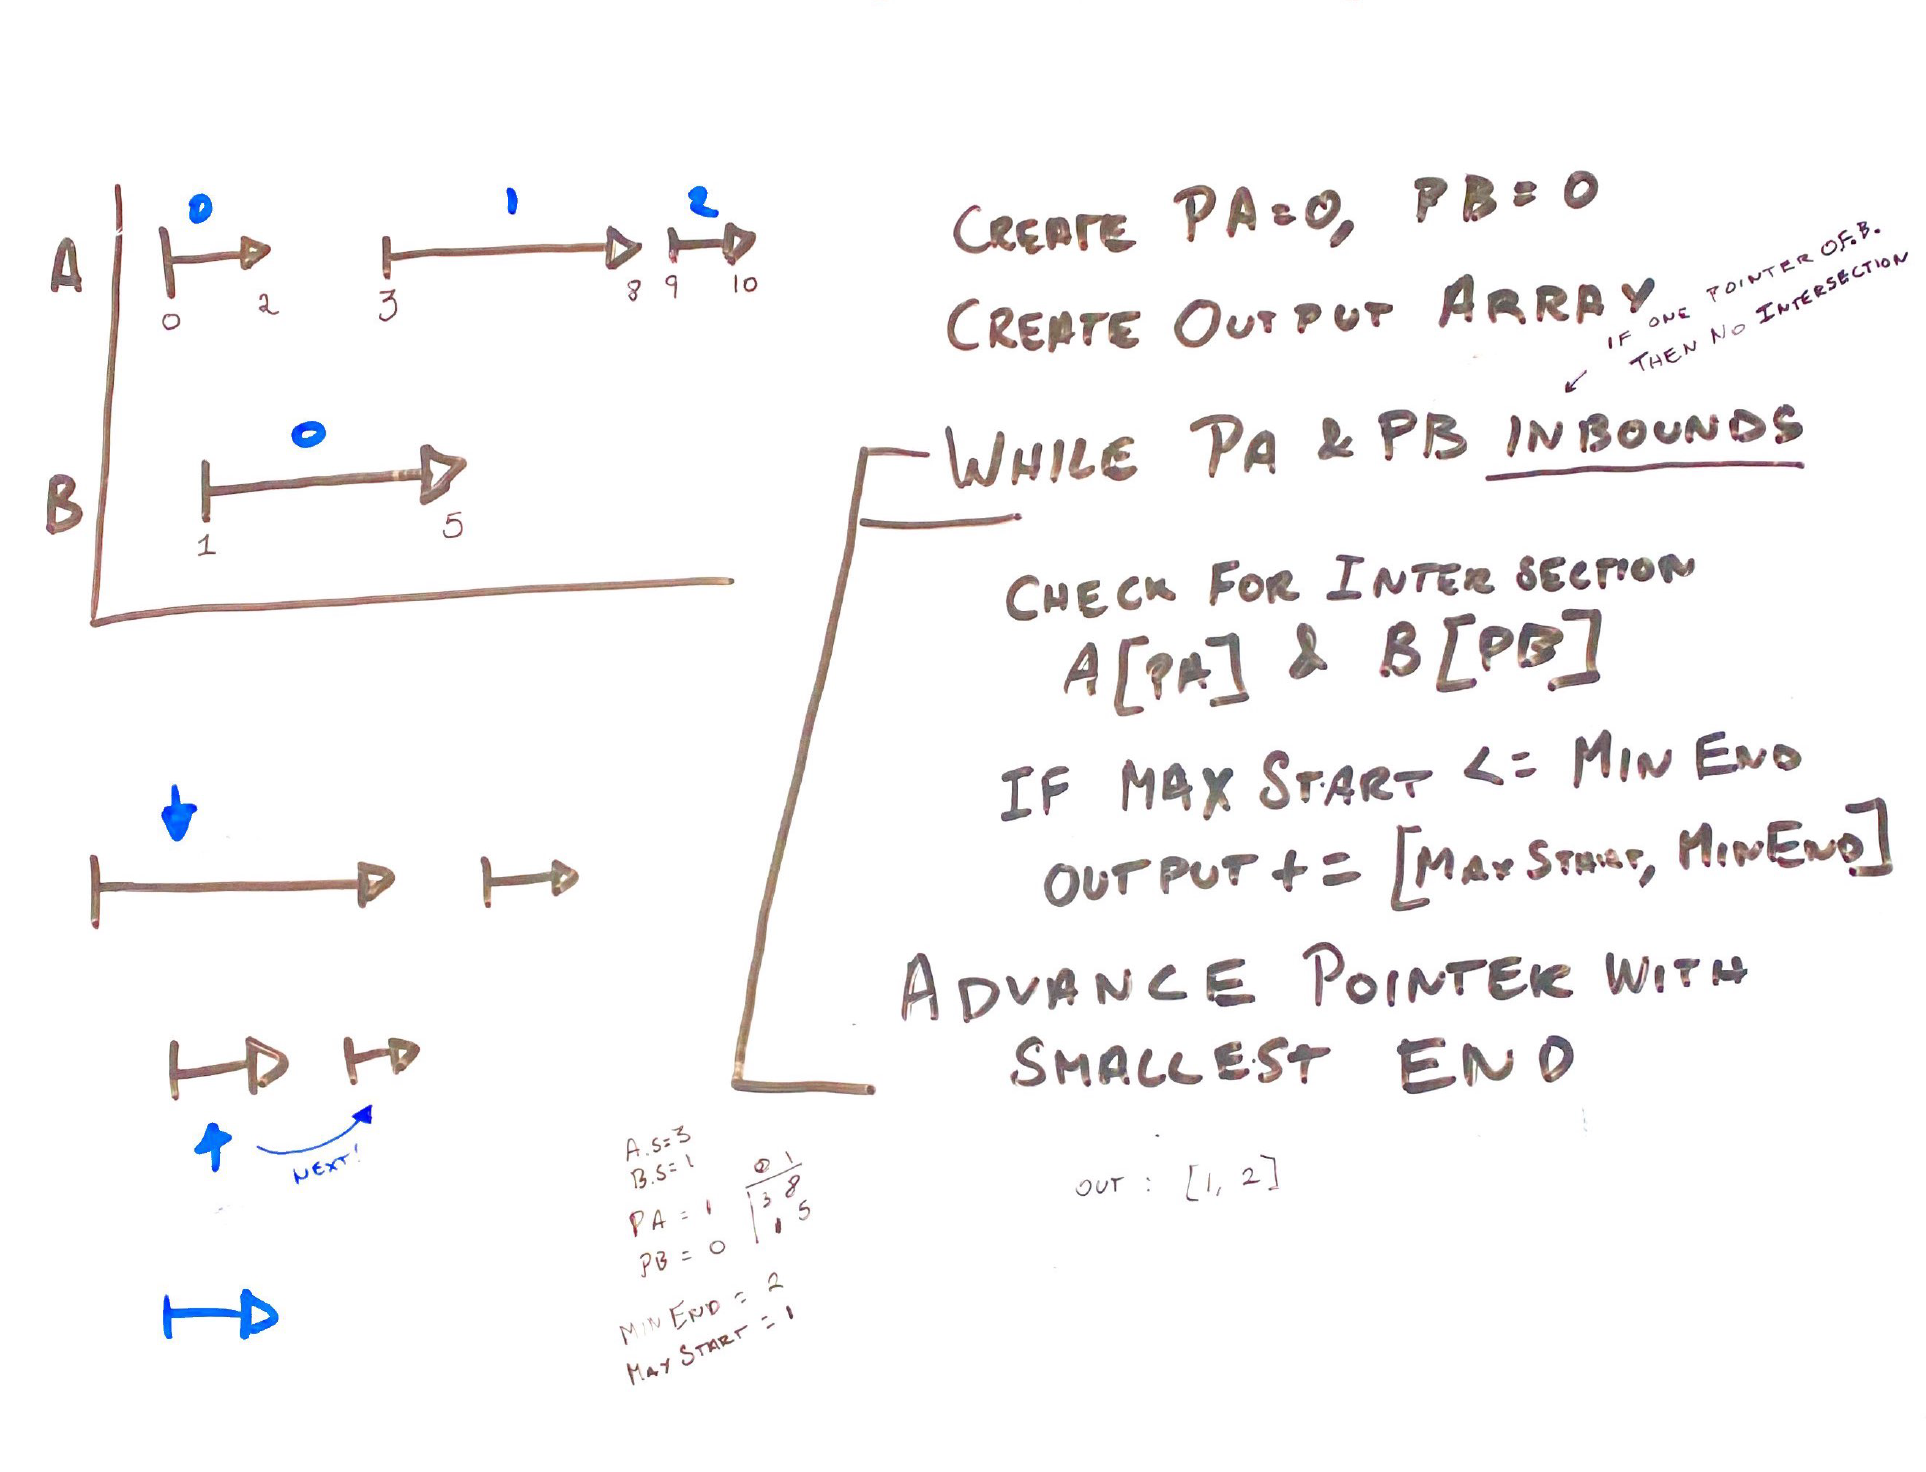 0 1 2
A
0 2 3 8 9 10
0
B
1 5
CREATE PA=0, PB=0
CREATE OUTPUT ARRAY
IF ONE POINTER O.F.B.
THEN NO INTERSECTION
WHILE PA & PB INBOUNDS
CHECK FOR INTERSECTION
A[PA] & B[PB]
IF MAX START <= MIN END
OUTPUT += [MAX START, MIN END]
ADVANCE POINTER WITH
SMALLEST END
NEXT!
A.S=3
B.S=1
PA = 1
PB = 0
0 1
3 8
1 5
MIN END = 2
MAX START = 1
OUT : [1, 2]